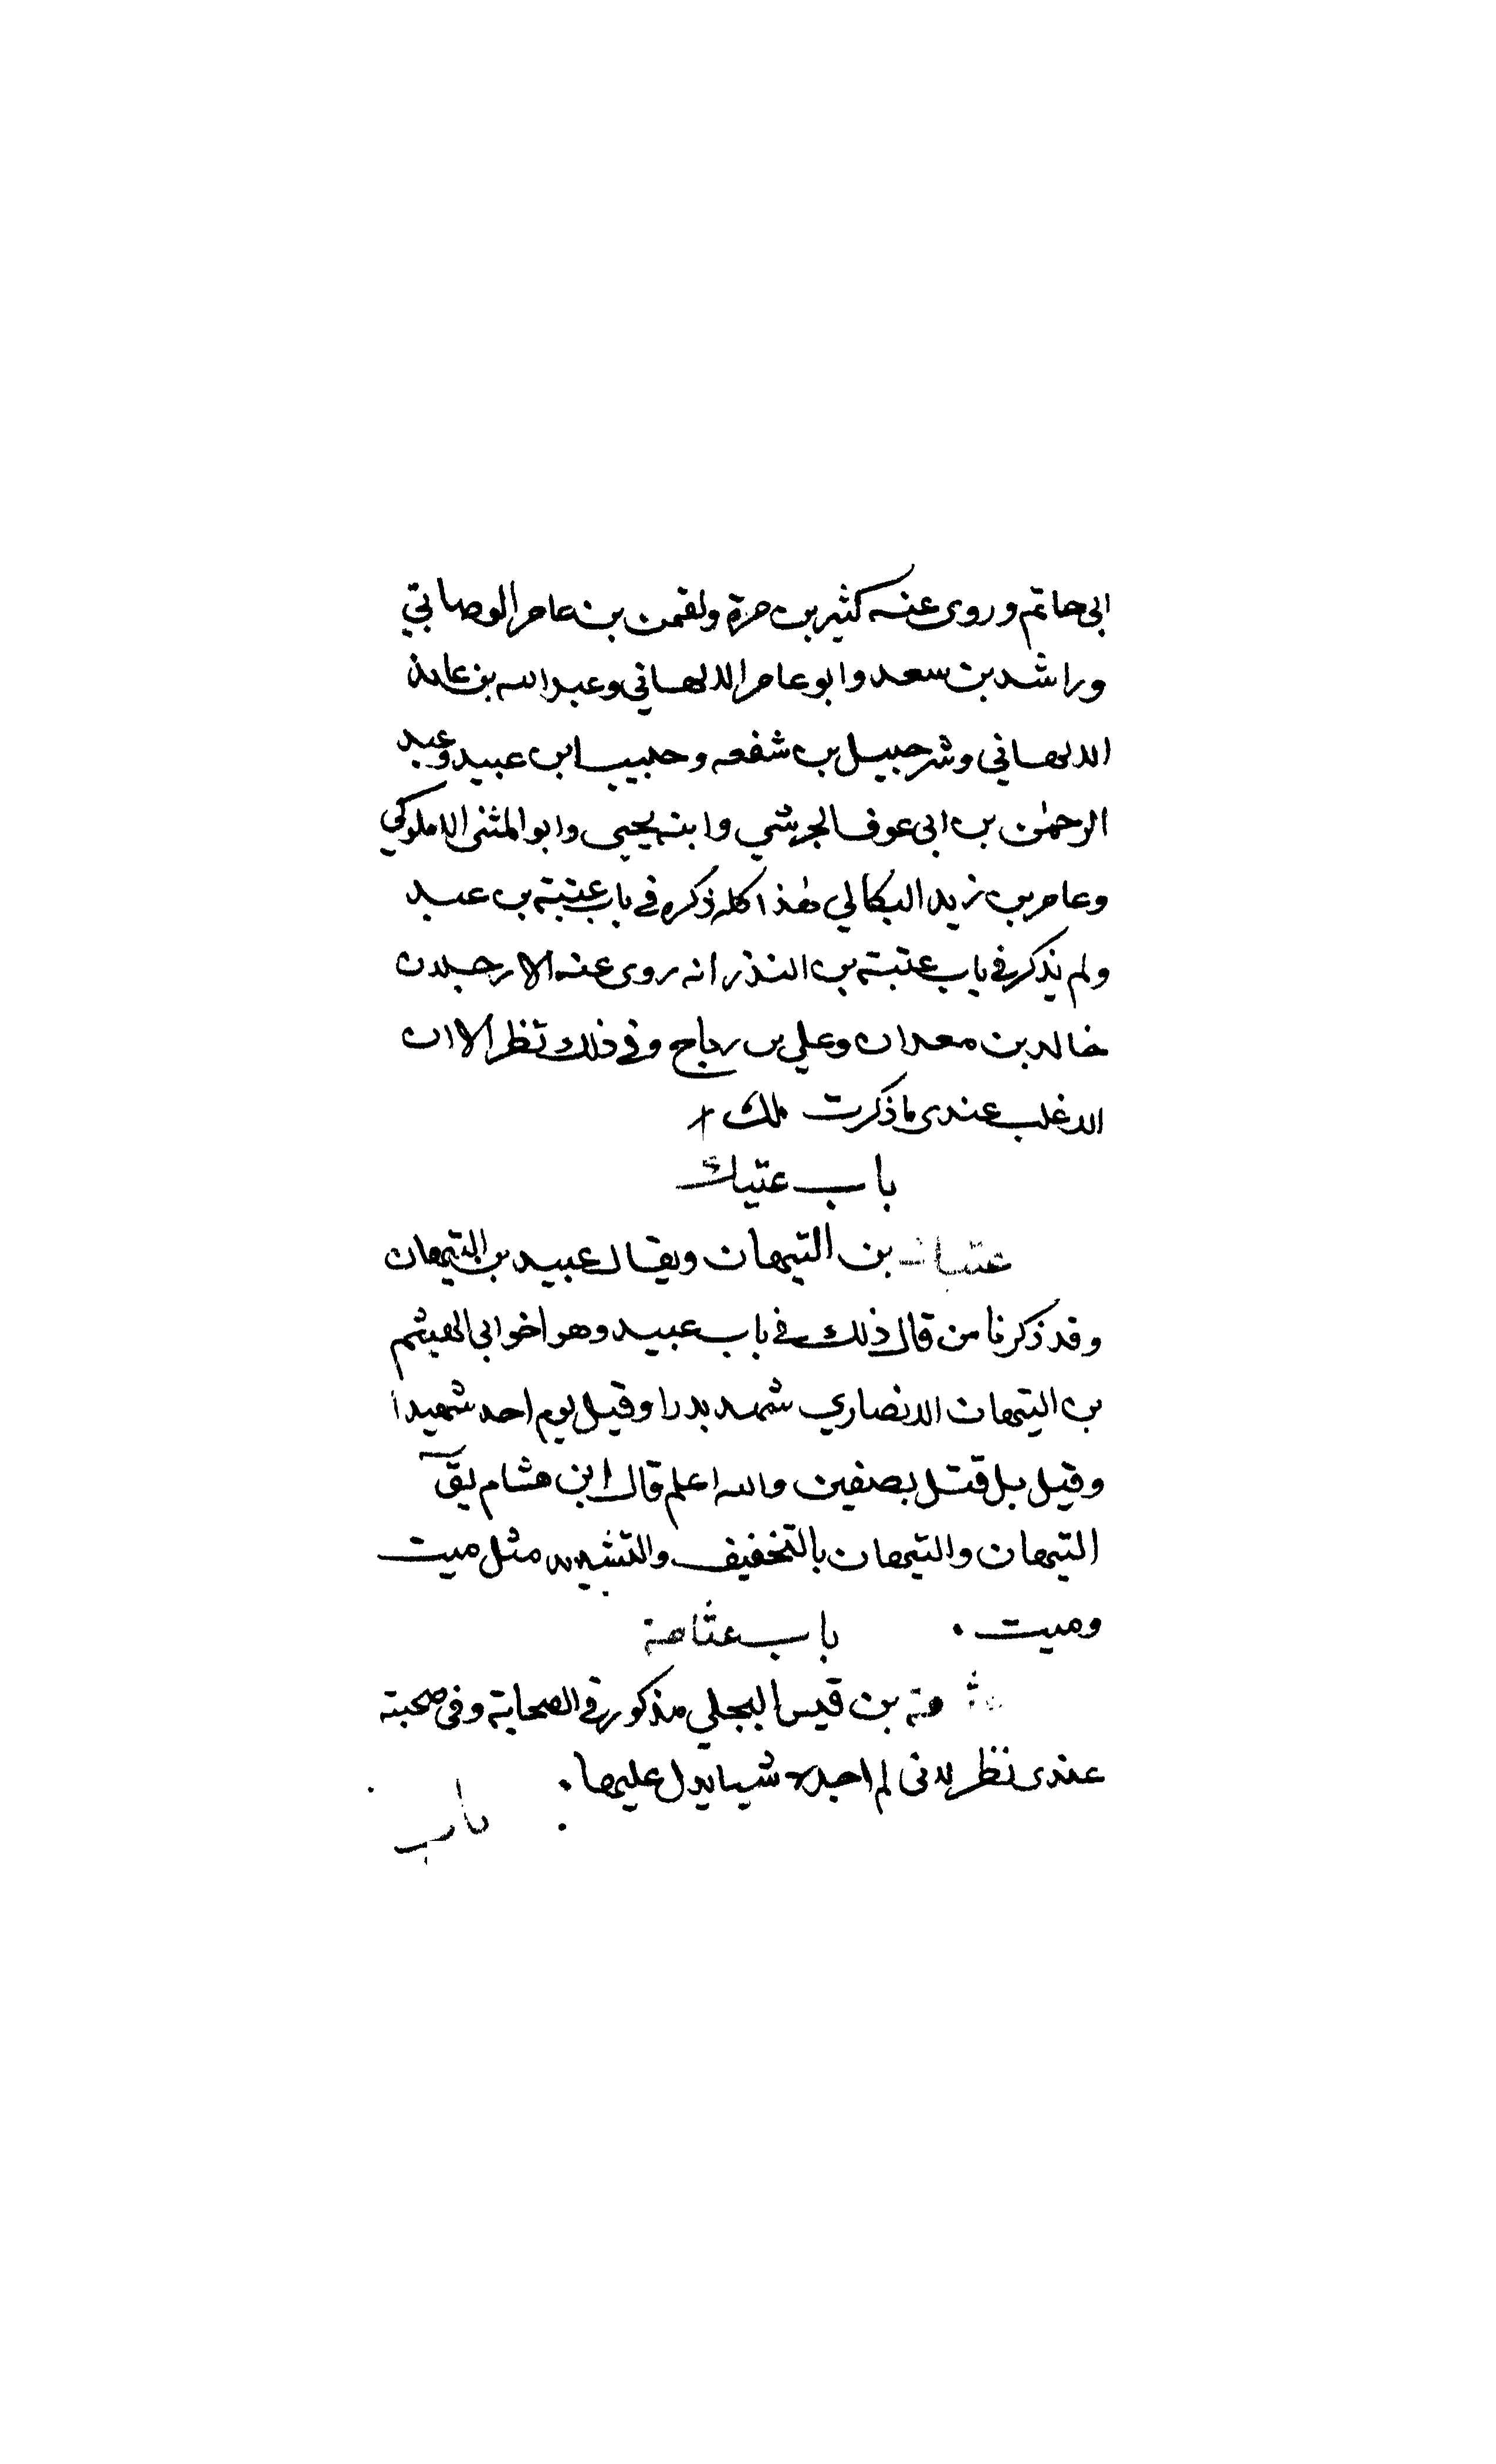 ابى حاتم وروى عنه كثير بن مرة ولقمن بن عامر الوصابي
وراشد بن سعد وابو عامر الالهاني وعبد الله بن عابد
الالهاني وشرحبيل بن شفعه وحبيب ابن عبيد وعبد
الرحمن بن ابى عوف الجرشي وابنه يحيى وابو المثنى الاملوكي
وعامر بن زيد البكالي هذا كله ذكره في باب عتبة بن عبد
ولم يذكر في باب عتبة بن النذر انه روى عنه الا رجلان
خالد بن معدان وعلي بن رباح وفي ذلك نظر الا ان
الاغلب عندى ما ذكرت لك
باب عتيك
بن التيهان ويقال عبيد بن التيهان
وقد ذكرنا من قال ذلك في باب عبيد وهو اخو ابى الهيثم
بن التيهان الانصاري شهد بدرا وقيل يوم احد شهيدا
وقيل بل قتل بصفين والله اعلم قال ابن هشام يق
التيهان والتيهان بالتخفيف والتشديد مثل ميت
وميت . باب عثامة
بن قيس البجلي مذكور في الصحابة وفى صحبته
عندى نظر لانى لم اجد شيا يدل عليها .
باب